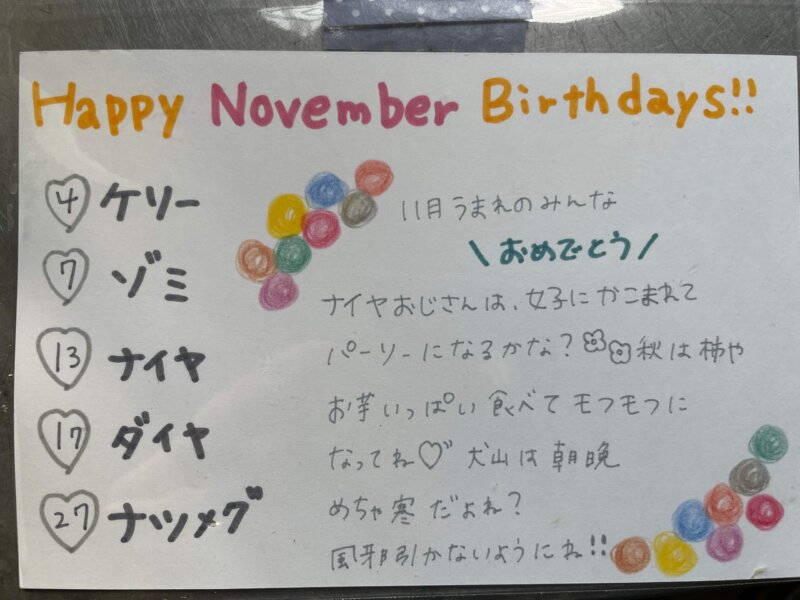 Happy November Birthdays!!
4 ケリー
7 ゾミ
13 ナイヤ
17 ダイヤ
27 ナツメグ
11月うまれのみんな
\おめでとう/
ナイヤおじさんは、女子にかこまれて
パーソーになるかな？秋は柿や
お芋いっぱい食べてモフモフに
なってね♡ 犬山は朝晩
めちゃ寒だよね？
風邪引かないようにね!!